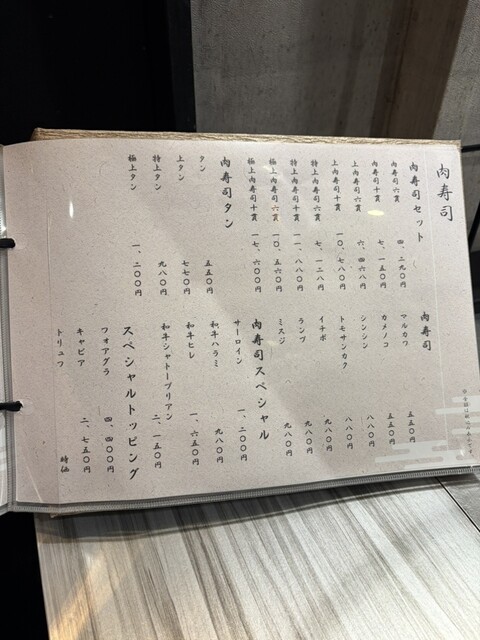 肉寿司
肉寿司セット
肉寿司六貫 四、二九〇円
肉寿司十貫 七、一五〇円
上肉寿司六貫 六、四六八円
上肉寿司十貫 一〇、七八〇円
特上肉寿司六貫 七、一二八円
特上肉寿司十貫 一一、八八〇円
極上肉寿司六貫 一〇、五六〇円
極上肉寿司十貫 一七、六〇〇円
肉寿司タン
タン 五五〇円
上タン 七七〇円
特上タン 九八〇円
極上タン 一、二〇〇円
肉寿司
マルカワ 五五〇円
カメノコ 五五〇円
シンシン 八八〇円
トモサンカク 八八〇円
イチボ 九八〇円
ランプ 九八〇円
ミスジ 九八〇円
肉寿司スペシャル
サーロイン 一、二〇〇円
和牛ハラミ 九八〇円
和牛ヒレ 一、六五〇円
和牛シャトーブリアン 二、一五〇円
スペシャルトッピング
フォアグラ 四、四〇〇円
キャビア 二、七五〇円
トリュフ 時価